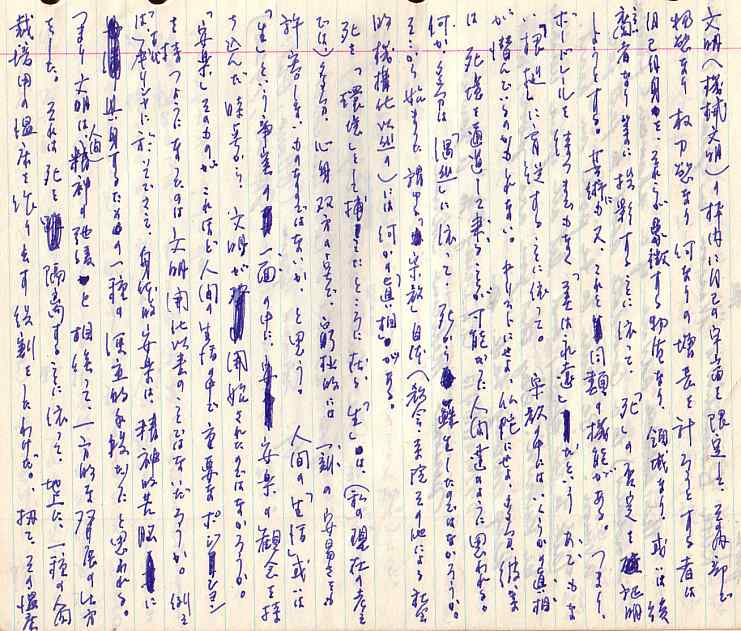 文明(機械文明)の枠内に自己の宇宙を限定し、その内部で
物慾なり権力慾なり何なりの増長を計ろうとする者は
自己自身を、それらが象徴する物質なり、領域なり、或いは後
継者なり等に投影することに依って、「死」の否定を証明
しようとする。芸術が又、これと同類の機能がある。つまり、
ボードレールを待つまでもなく「美は永遠」だというあれでもな
い「超越」に盲従することに依って。宗教の中にはいくらかの真相
が潜んでいるのかもしれない。キリストにせよ、仏陀にせよ、多分彼等
は死境を通過して来ることが可能だった人間達のように思われる。
何か多分は「偶然」に依って、死から蘇生したのではなかろうか。
そこから始まった謂ゆる「宗教」自体(教会、寺院その他による社会
的機構化以前の)には何かの「真相」がある。
死を「環境」として捕えたところに在る「生」は、(私の現在の考え
では)多分、心身双方の上で、窮極的には一刻の安易さも
許容しないものなのではないか、と思う。人間の「生活」或いは
「生」という事実の一面の中に、安楽の観念を採
り込んだ時等から、文明が開始されたのではなかろうか。
「安楽」そのものが、これほど人間の生活の中で重要なポジション
を持つようになったのは文明開化以来のことではないだろうか。例え
ば古代ギリシャに於いてさえ、身体的安楽は、精神的苦悩に
献身するための一種の保立的手段だったと思われる。
つまり文明は、人間精神の弛緩と相俟って、一方的な発展の仕方
をした。それは死を隔離することに依って、地上に一種の人間
栽培用の温床を作り出す役割をしたわけだ。扨て、その温床